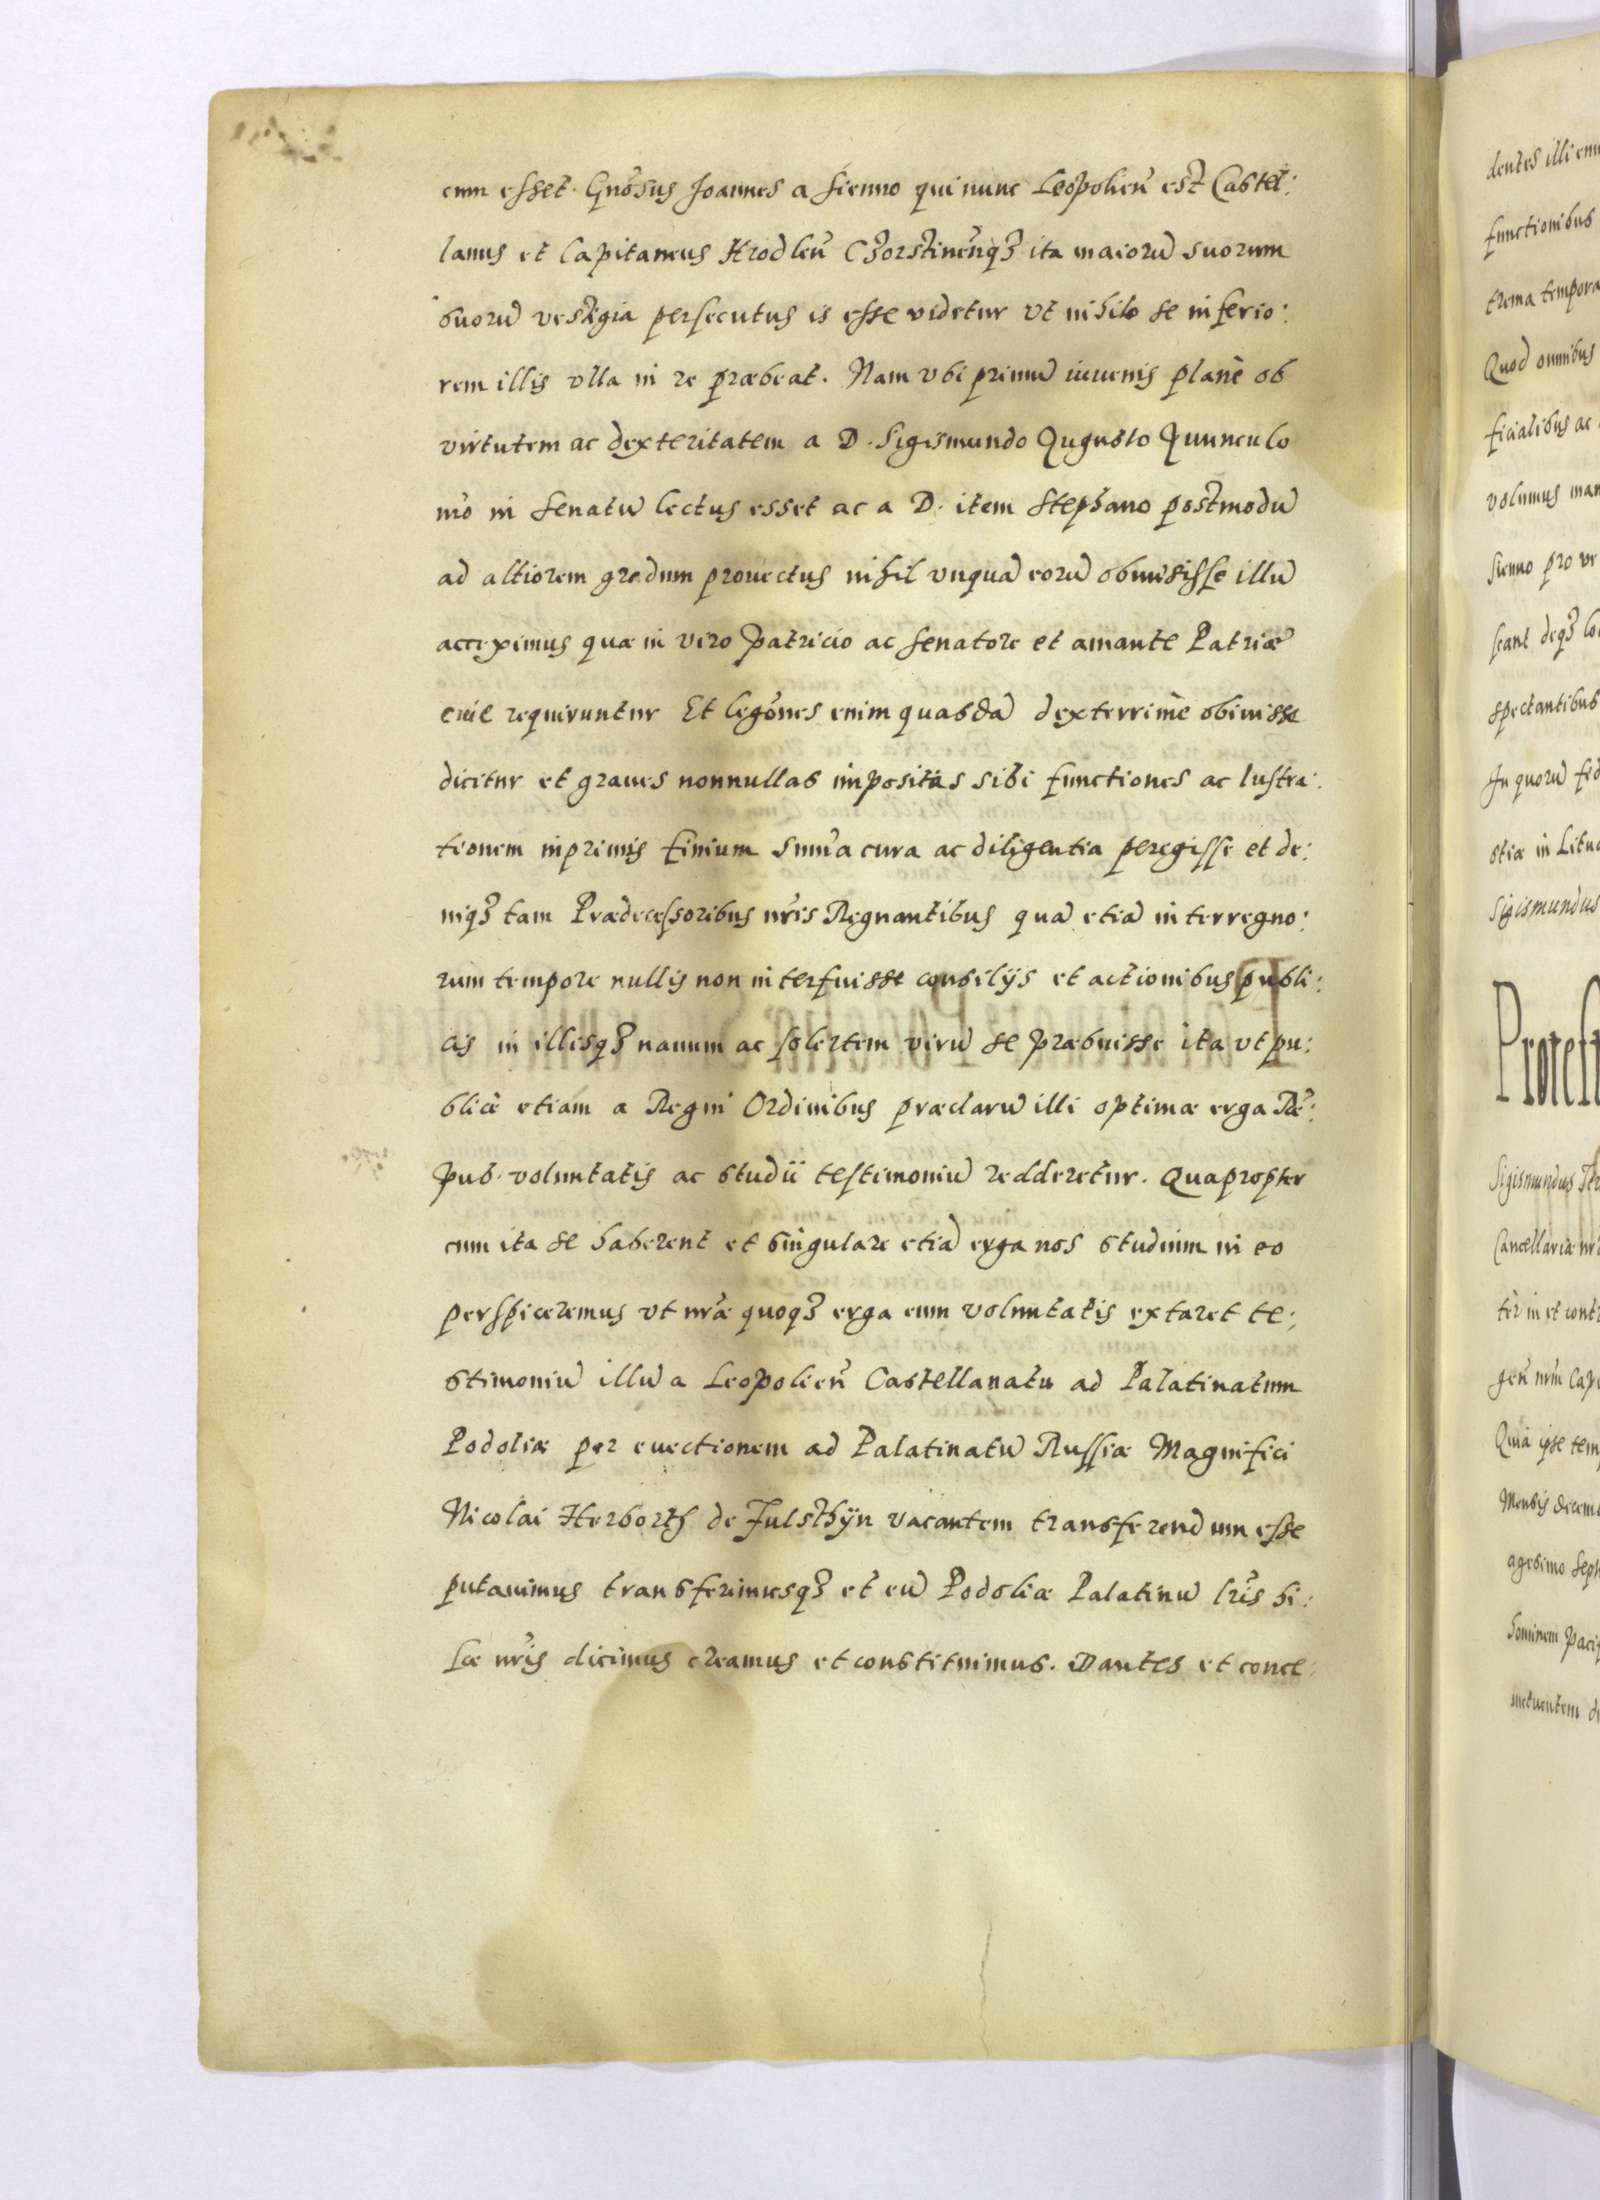 cum esset. Gnosus Joannes a Sienno qui nunc Leopolien est Castel:
lanus et Capitaneus Hrodlen Czorstinenqȝ ita maiorũ suorum
suorũ vestigia persecutus is esse videtur vt nihilo se inferio:
rem illis vlla in re præbeat. Nam vbi primũ iuuenis planè ob
virtutem ac dexteritatem a D. Sigismundo Augusto Auunculo
nrõ in Senatũ lectus esset ac a D. item Stephano postmodũ
ad altiorem gradum prouectus nihil vnquã eorũ obmisisse illũ
accepimus quæ in viro Patricio ac Senatore et amante Patriæ
ciue requiruntur Et legones enim quasdã dexterrimè obiuisse
dicitur et graues nonnullas impositas sibi functiones ac lustra:
tionem inprimis finium summa cura ac diligentia peregisse et de:
niqȝ tam Prædecessoribus nris Regnantibus quã etiã interregno:
rum tempore nullis non interfuisse consilijs et actionibus publi:
cis in illisqȝ nauum ac solertem virũ se præbuisse ita vt pu:
blicè etiam a Regni Ordinibus præclarũ illi optimæ erga Rẽ:
pub. voluntatis ac studii testimoniũ redderetur. Quapropter
cum ita se haberent et singulare etiã erga nos studium in eo
perspiceremus vt nræ quoqȝ erga eum voluntatis extaret te:
stimoniũ illũ a Leopolien Castellanatu ad Palatinatum
Podoliæ per euectionem ad Palatinatũ Russiæ Magnifici
Nicolai Herborth de Fulsthyn vacantem transferendum esse
putauimus transferimusqȝ et eũ Podoliæ Palatinũ lris hi:
sce nris dicimus creamus et constituimus. Dantes et conce:
dentes illi
functionibus
trema tempora
Quod omnibus
ficialibus ac
volumus
Sienno pro
scant deqȝ
spectantibus
In quorũ
stiæ in
Sigismundus
Sigismundus
Cancellariæ
ter in et
gen nrm
Quia ipse
Mensis
agesimo
hominem
metuentem